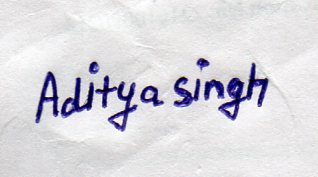 Aditya singh